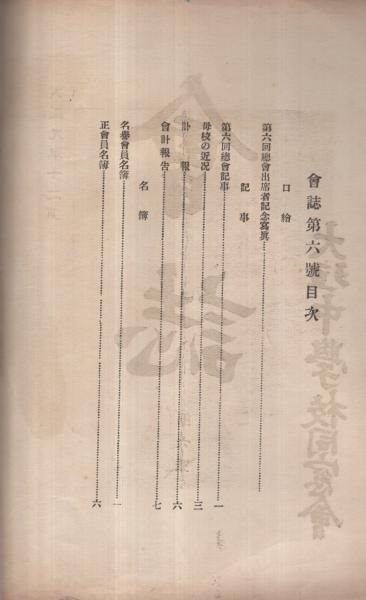 會誌第六號目次
口繪
第六回總會出席者記念寫眞
記事
第六回總會記事……一
母校の近況……三
訃報……六
會計報告……七
名簿
名譽會員名簿……一
正會員名簿……六